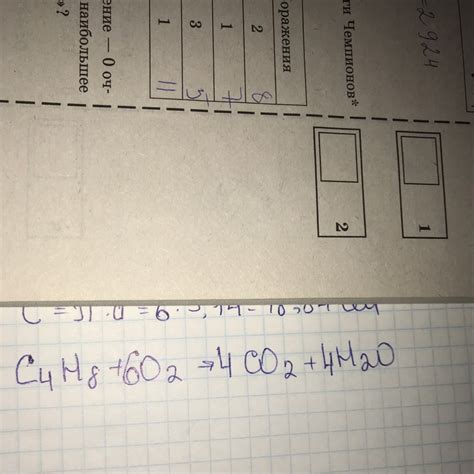 =2 924
ти Чемпионов*
оражения
2 8
1 7
3 5
1 11
ение — 0 оч-
наибольшее
»?
1
2
C₄H₈+6O₂→4CO₂+4H₂O